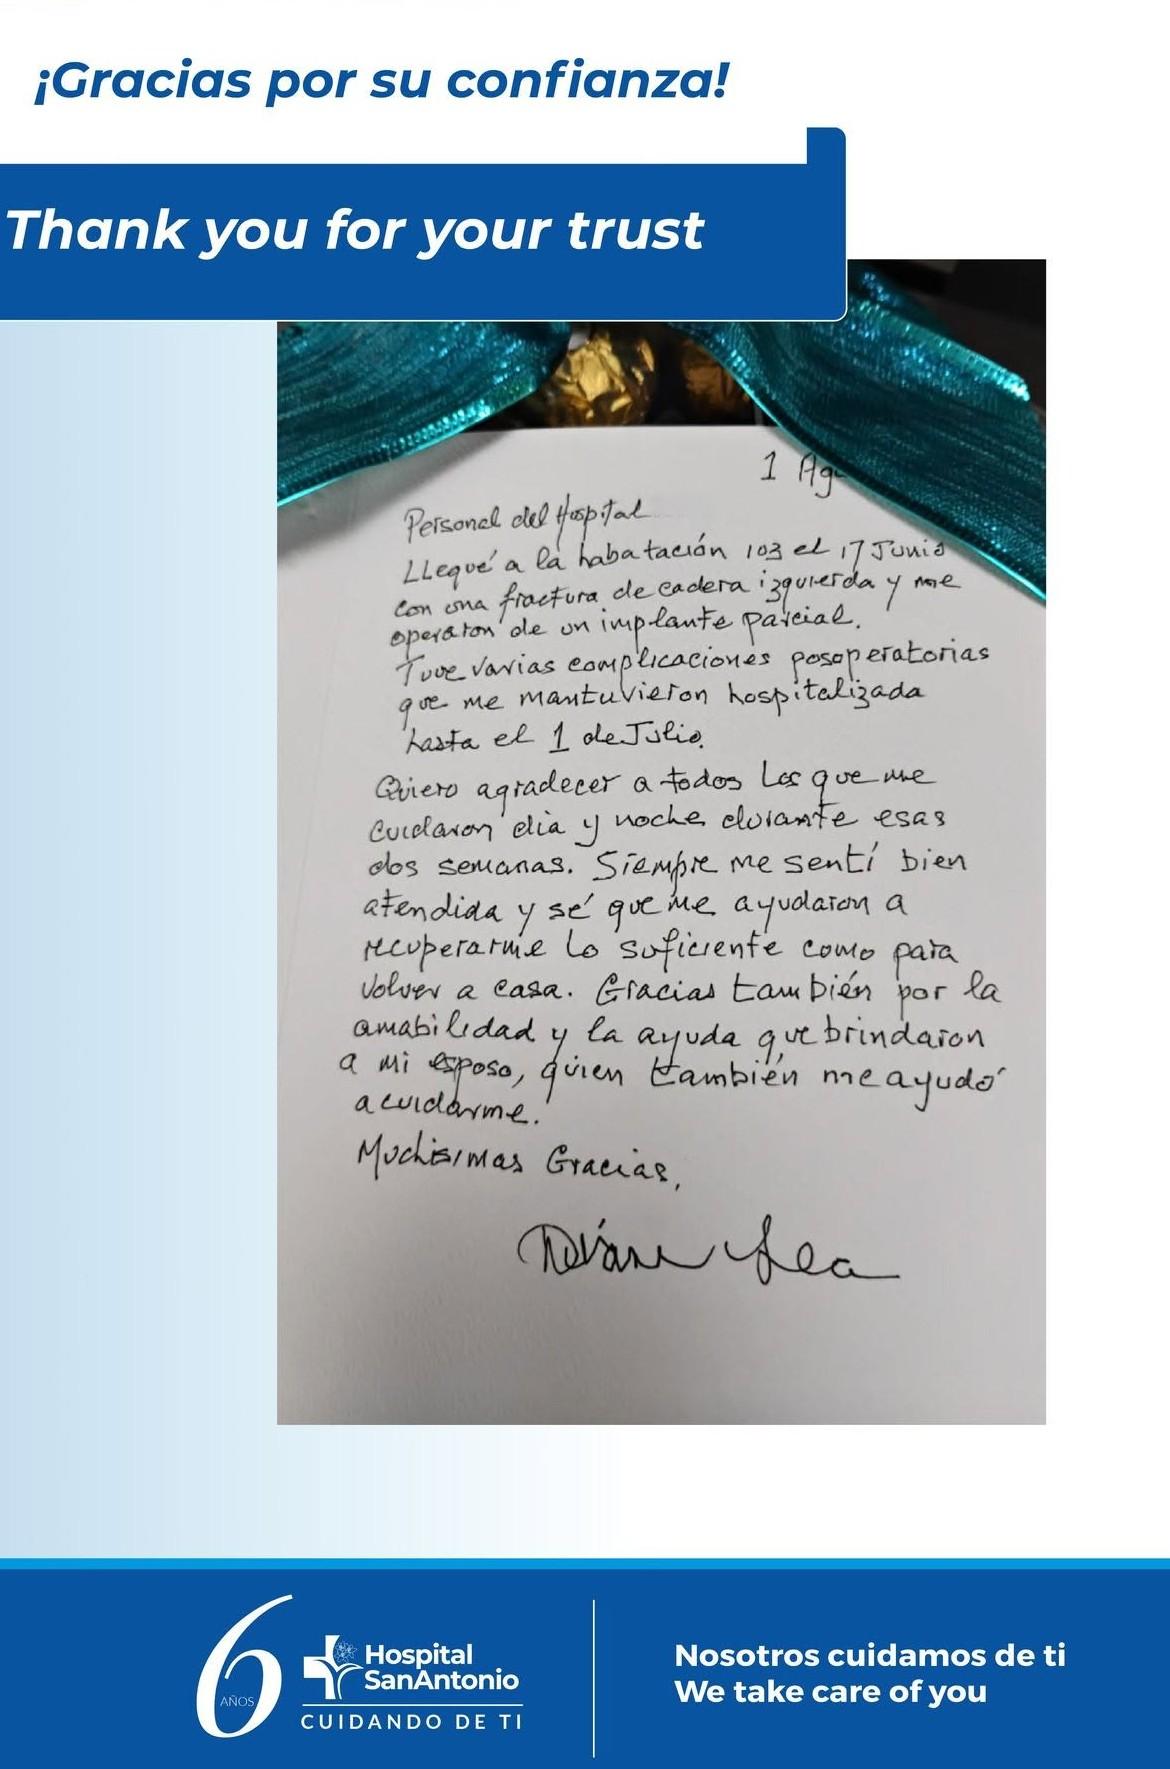 ¡Gracias por su confianza!
Thank you for your trust
1 Ag
Personal del Hospital
LLegué a la habatación 103 el 17 Junio
con una fractura de cadera izquierda y me
operaron de un implante parcial.
Tuve varias complicaciones posoperatorias
que me mantuvieron hospitalizada
hasta el 1 de Julio.
Quiero agradecer a todos los que me
cuidaron dia y noche durante esas
dos semanas. Siempre me sentí bien
atendida y sé que me ayudaron a
recuperarme lo suficiente como para
volver a casa. Gracias también por la
amabilidad y la ayuda que brindaron
a mi esposo, quien también me ayudó
a cuidarme.
Muchisimas Gracias,
6 AÑOS
Hospital
SanAntonio
CUIDANDO DE TI
Nosotros cuidamos de ti
We take care of you